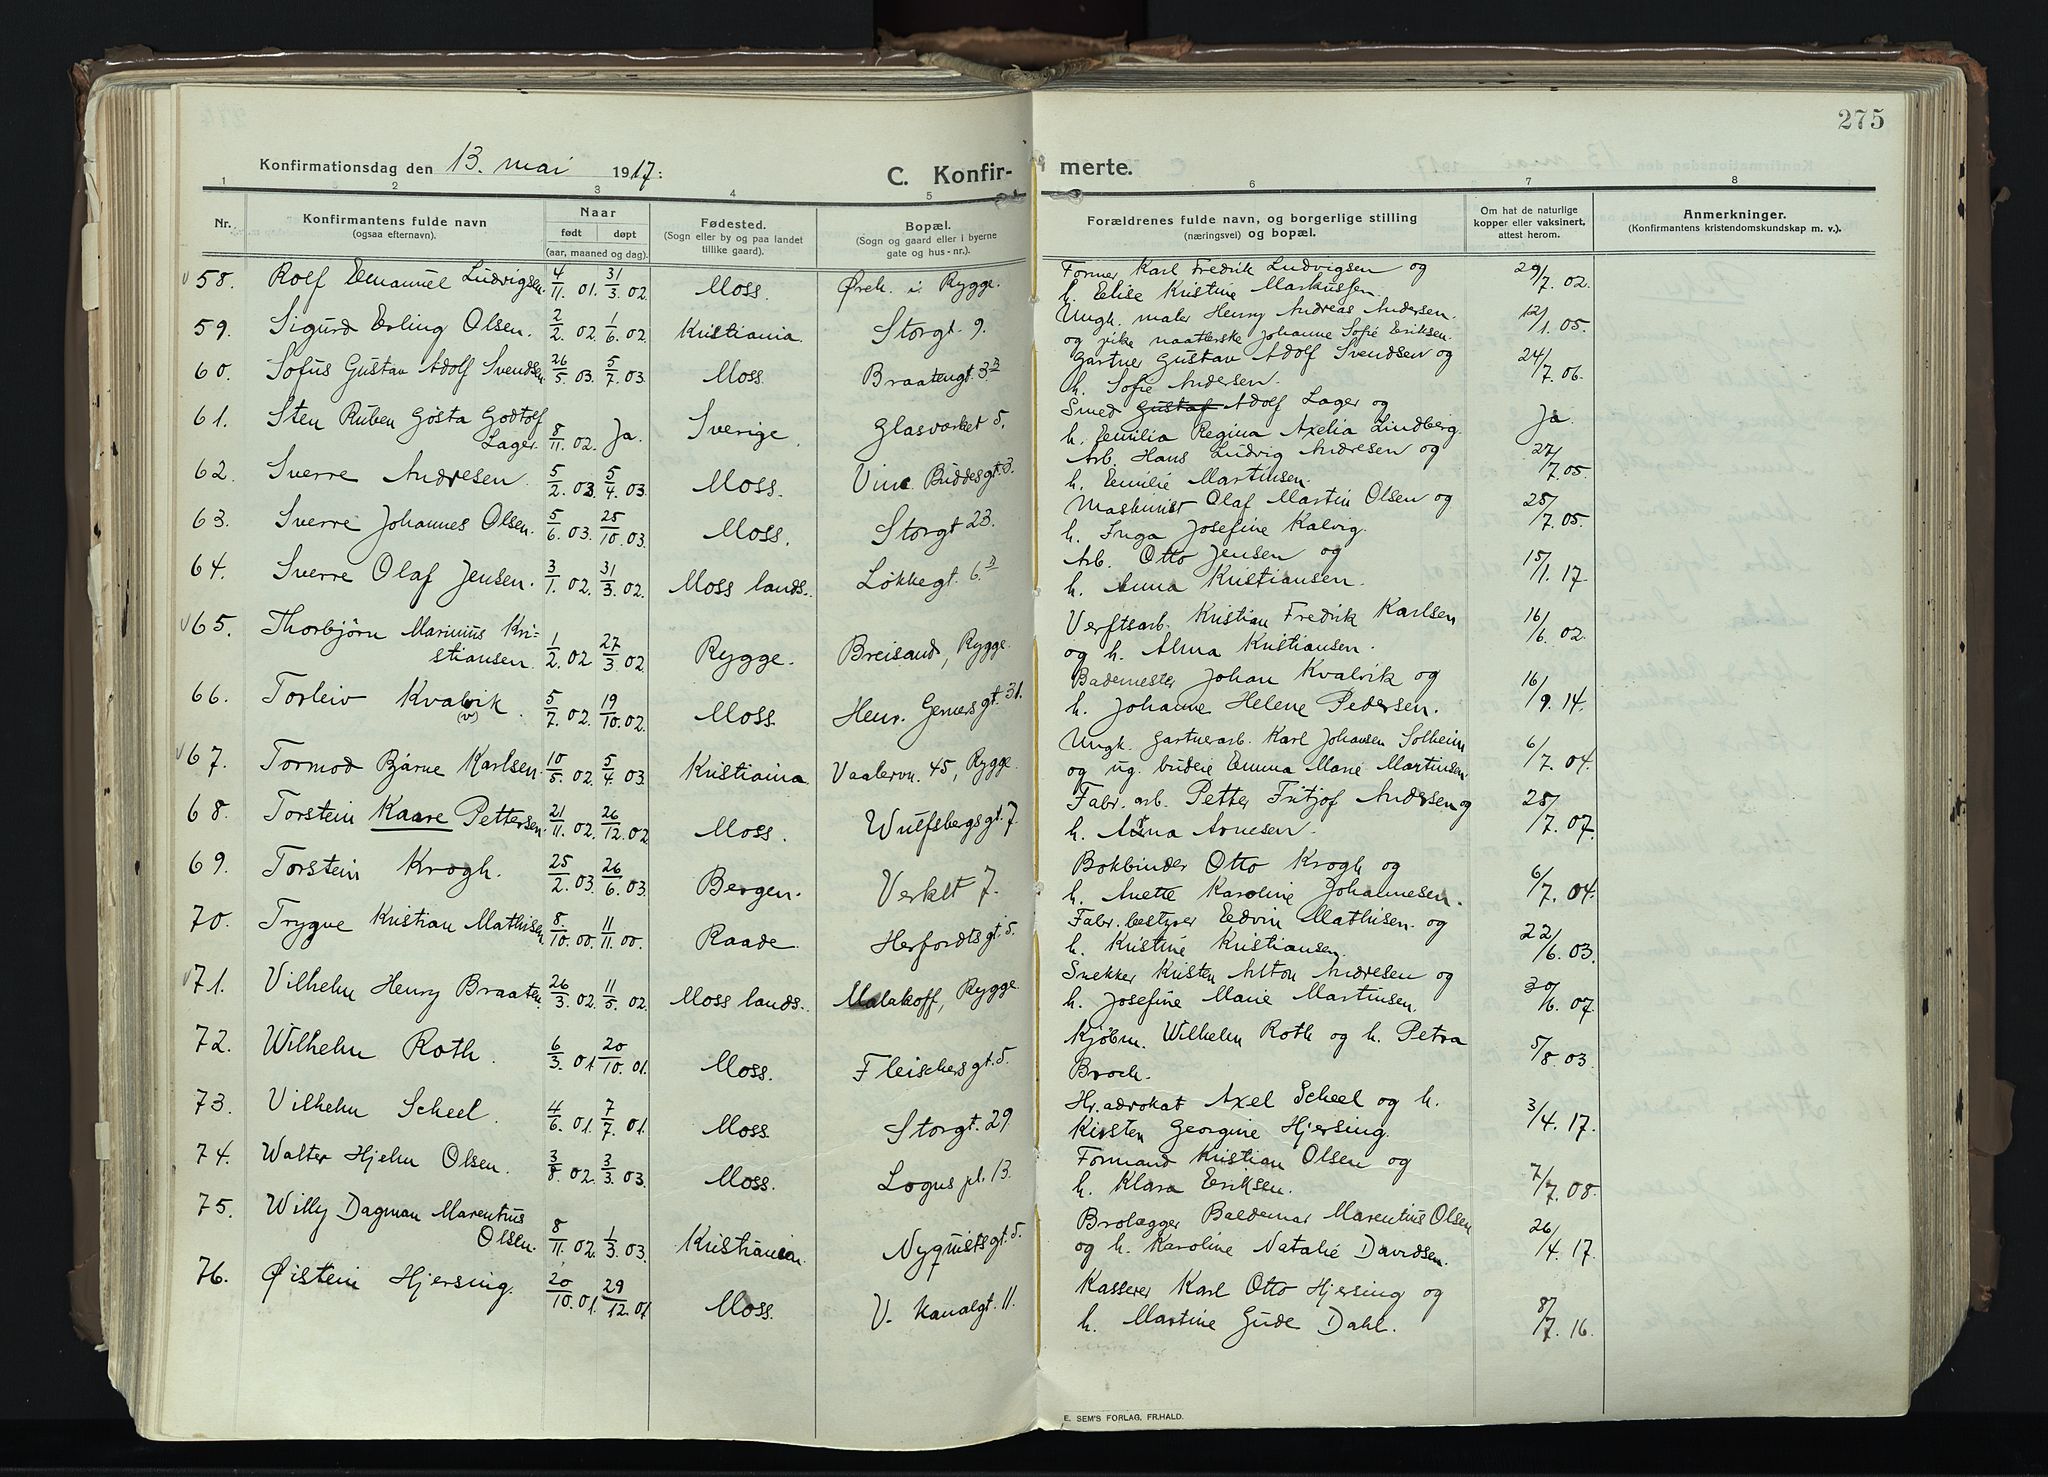 275
Konfirmationsdag den 13. mai 1917:
C. Konfir- merte.
1 2 3 4 5 6 7 8
Nr. Konfirmantens fulde navn (ogsaa efternavn). Naar født døpt (aar, maaned og dag). Fødested. (Sogn eller by og paa landet tillike gaard). Bopæl. (Sogn og gaard eller i byerne gate og hus-nr.). Forældrenes fulde navn, og borgerlige stilling (næringsvei) og bopæl. Om hat de naturlige kopper eller vaksinert, attest herom. Anmerkninger. (Konfirmantens kristendomskundskap m. v.).
58. Rolf Emanuel Ludvigsen 4/11. 01. 31/3. 02. Moss. Øreh. i Rygge. Former Karl Fredrik Ludvigsen og 29/7. 02.
h. Elise Kristine Markussen.
59. Sigurd Erling Olsen. 2/2. 02. 1/6. 02. Kristiania. Storgt. 9. Ungk. maler Henry Andreas Andersen. 12/1. 05.
og pike naatlerske Johanne Sofie Eriksen.
60. Sofus Gustav Adolf Svendsen 26/5. 03. 5/7. 03. Moss. Braatengt. 33. Gartner Gustav Adolf Svendsen og 24/7. 06.
h. Sofie Andersen.
61. Sten Ruben Gösta Godtolf Smed Gustaf Adolf Lager og Ja.
Lager. 8/11. 02. Ja. Sverige. Glasverket 5. h. Emilia Regina Axelia Lindberg.
62. Sverre Andresen. 5/2. 03. 5/4. 03. Moss. Vinc. Buddesgt. 3. Arb. Hans Ludvig Andresen og 27/7. 05.
h. Emilie Martinsen.
63. Sverre Johannes Olsen. 5/6. 03. 25/10. 03. Moss. Storgt 23. Maskinist Olaf Martin Olsen og 25/7. 05.
h. Inga Josefine Kalvig.
64. Sverre Olaf Jensen. 3/1. 02. 31/3. 02. Moss lands. Løkkegt. 6. Arb. Otto Jensen og 15/1. 17.
h. Anna Kristiansen.
65. Thorbjørn Marinius Kri- Verftsarb. Kristian Fredrik Karlsen 16/6. 02.
stiansen. 1/2. 02 27/3. 02 Rygge. Breisand, Rygge. og h. Alma Kristiansen.
66. Torleiv Kvalvik. (v) 5/7. 02. 19/10. 02. Moss. Henr. Gernersgt. 31. Bademester Johan Kvalvik og 16/9. 14.
h. Johanne Helene Pedersen.
67. Tormod Bjarne Karlsen. 10/5. 02. 5/4. 03. Kristiania. Vaalervn. 45, Rygge. Ungk. gartnerarb. Karl Johansen Solheim 6/7. 04.
og ug. budeie Emma Marie Martinsen.
68. Torstein Kaare Pettersen. 21/11. 02. 26/12. 02. Moss. Wulfsbergsgt. 7. Fabr. arb. Petter Fritjof Andersen og 25/7. 07.
h. Anna Arnesen.
69. Torstein Krogh. 25/2. 03. 26/6. 03. Bergen. Verkst 7. Bokbinder Otto Krogh og 6/7. 04.
h. Anette Karoline Johannesen.
70. Trygve Kristian Mathisen 8./10. 00. 11/11. 00. Raade. Herfordtsgt. 5. Fabr. bestyrer Edvin Mathisen. og 22/6. 03.
h. Kristine Kristiansen.
71. Vilhelm Henry Braaten. 26/3. 02. 11/5. 02. Moss lands. Malakoff, Rygge Snekker Kristen Alton Andresen og 30/6. 07.
h. Josefine Marie Martinsen.
72. Wilhelm Roth. 6/3. 01 20/10. 01. Moss. Fleischersgt. 5. Kjøbm. Wilhelm Roth og h. Petra 5/8. 03.
Broch.
73. Vilhelm Scheel. 4/6. 01. 7/7. 01. Moss. Storgt. 29. Hr. advokat Axel Scheel og h. 3/4. 17.
Kirsten Georgine Hjersing.
74. Walter Hjelm Olsen. 3/8. 02. 3/3. 03. Moss. Logns pl. 13. Formand Kristian Olsen og 7/7. 08.
h. Klara Eriksen.
75. Willy Dagman Marentius Brolægger Baldemar Marentius Olsen 26/4. 17.
Olsen. 8/11. 02. 1/3. 03. Kristiania. Nyquistsgt. 5. og h. Karoline Natalie Davidsen.
76. Øistein Hjersing. 20/10. 01. 29/12. 01. Moss. V. Kanalgt. 11. Kasserer Karl Otto Hjersing og 8/7. 16.
h. Martine Gude Dahl.
E. SEM'S FORLAG, FR.HALD.